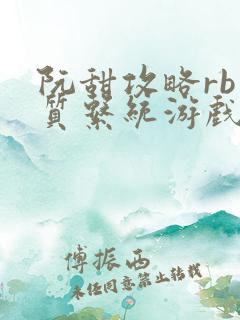 阮甜攻略rb
质系统游戏
傅振西
未经同意禁止转载